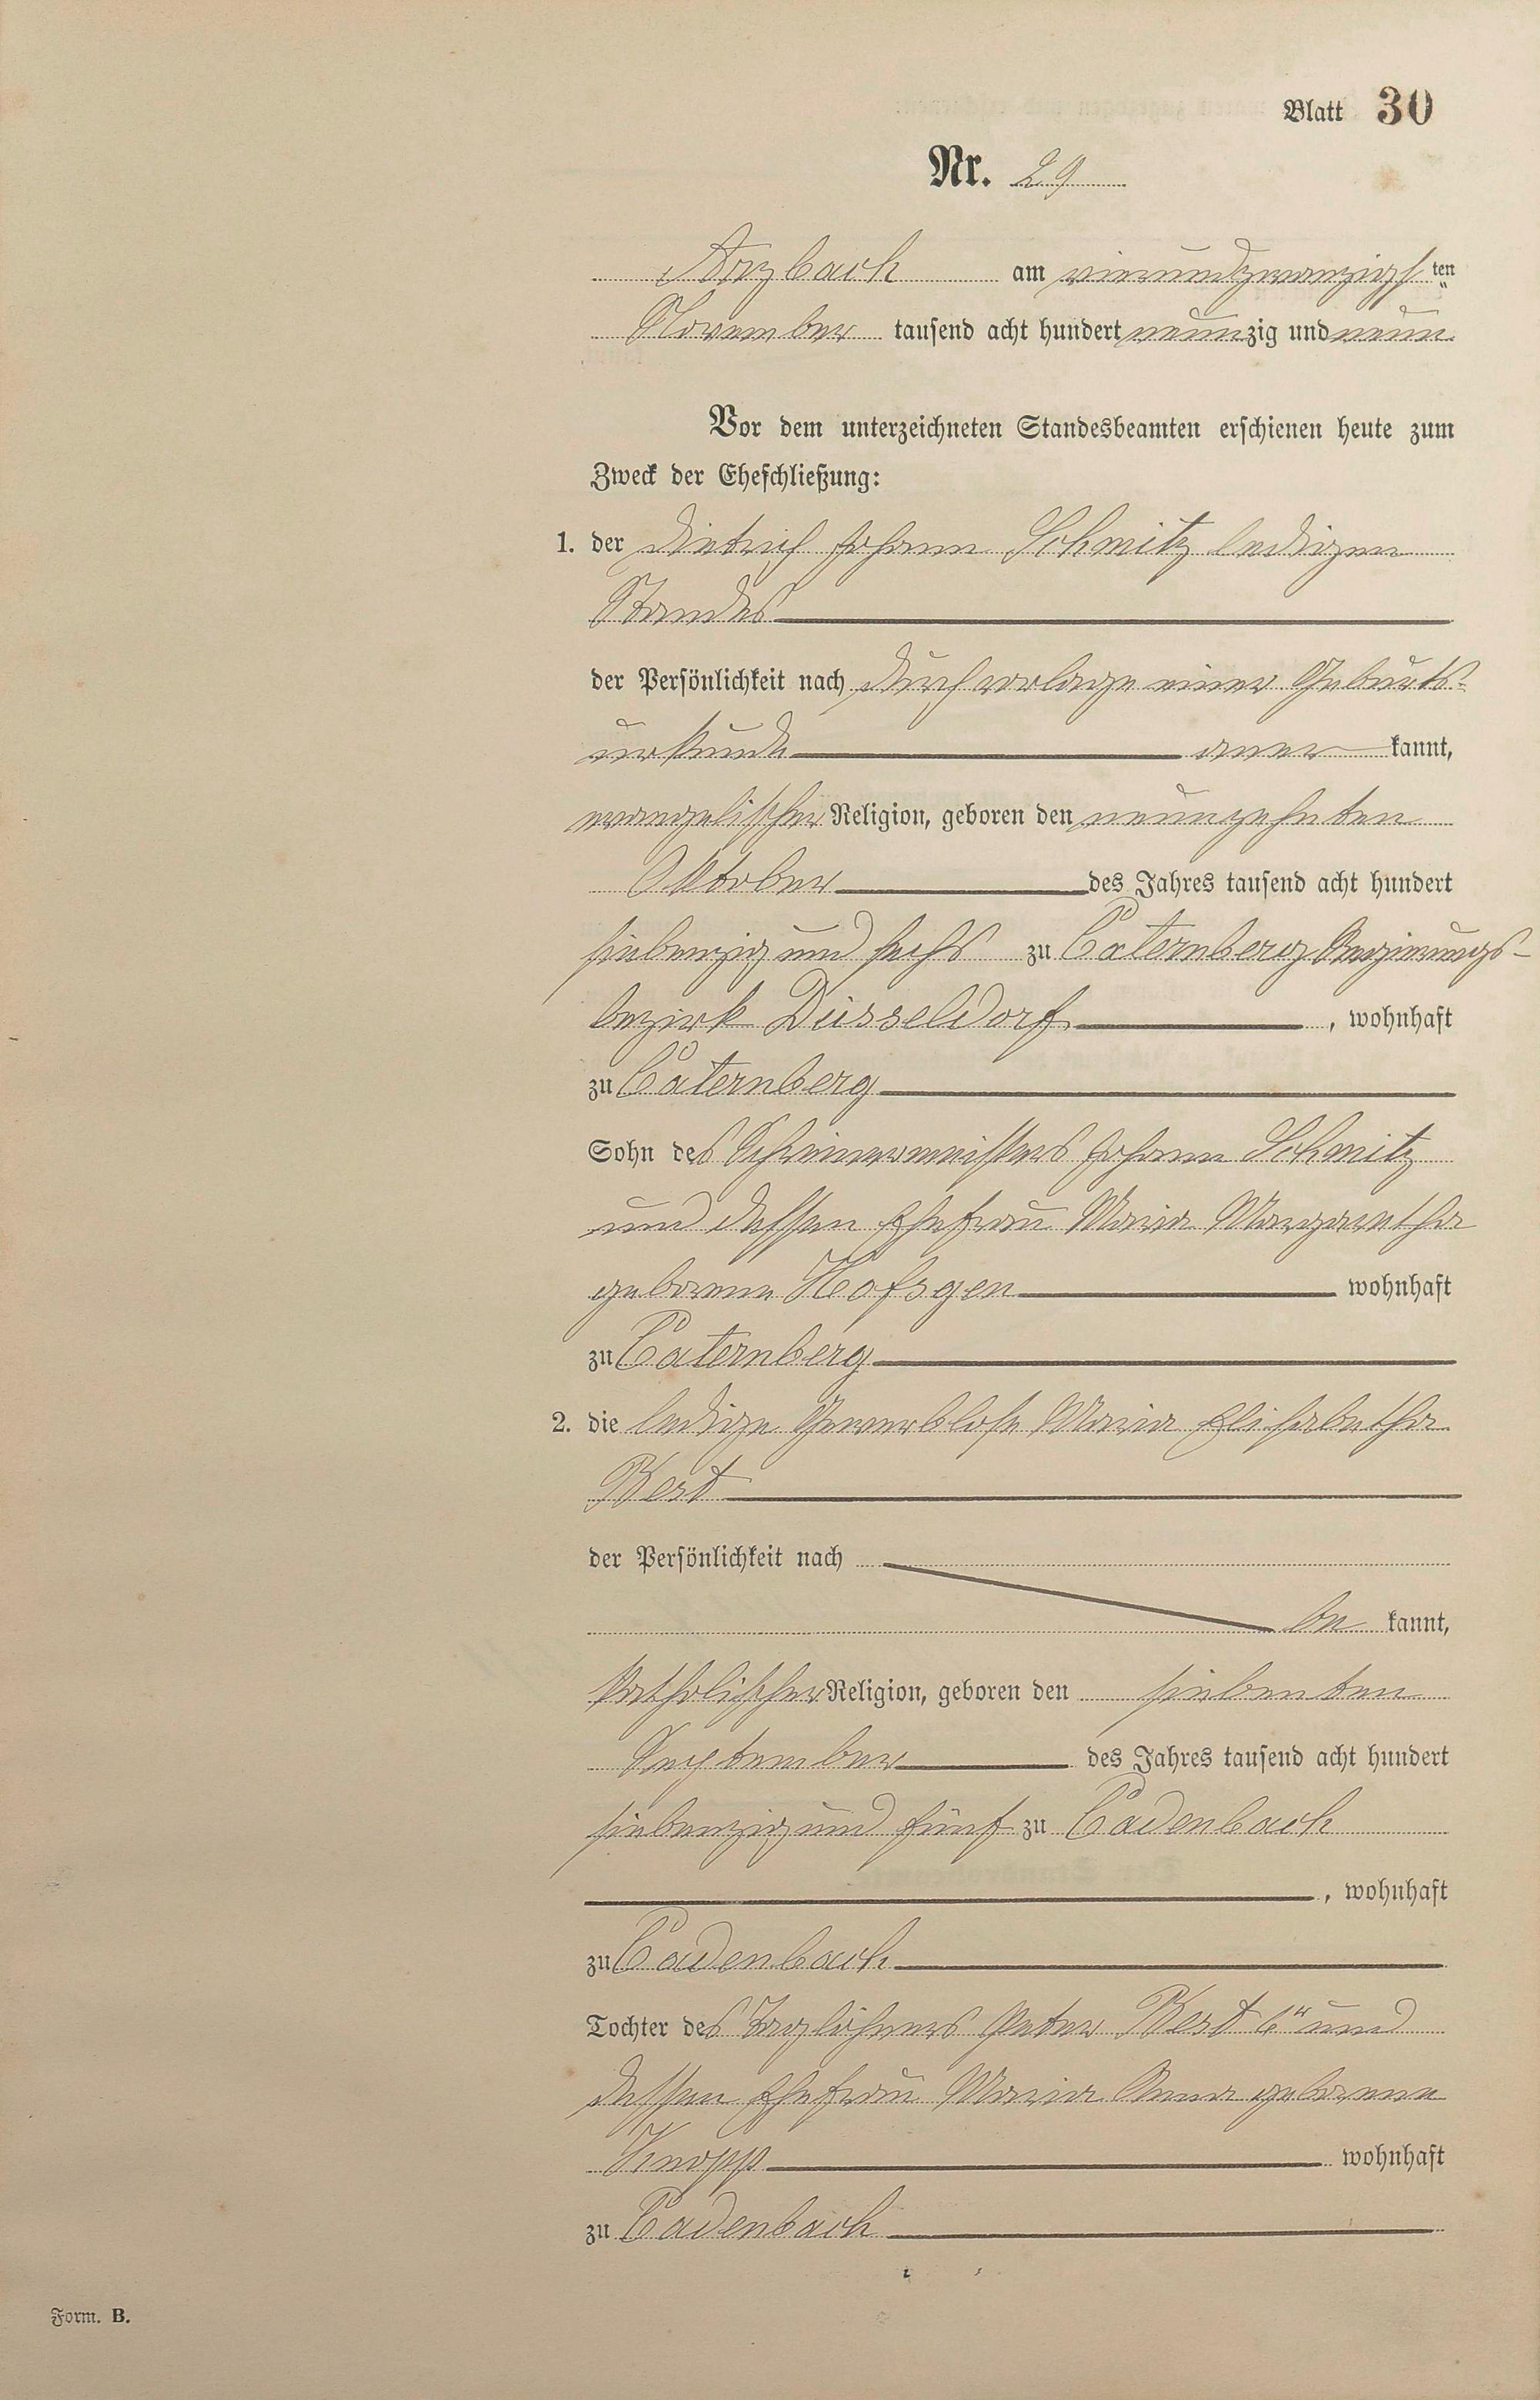 Blatt 30
Nr. 29
Arzbach am vierundzwanzigsten
November tausend acht hundert neunzig und neun
Vor dem unterzeichneten Standesbeamten erschienen heute zum
Zweck der Eheschließung:
1. der Dietrich Johann Schmitz ledigen
Standes
der Persönlichkeit nach durch vorlage einer Geburts-
urkunde aner kannt,
evangelischer Religion, geboren den neunzehnten
Oktober des Jahres tausend acht hundert
siebenzig und sechs zu Caternberg Regierungs-
bezirk Düsseldorf, wohnhaft
zu Caternberg
Sohn des Schreinermeisters Johann Schmitz
und dessen Ehefrau Maria Margaretha
geborene Hofsgen wohnhaft
zu Caternberg
2. die ledige Gewerblose Maria Elisabetha
Best
der Persönlichkeit nach
be kannt,
katholischer Religion, geboren den siebenten
September des Jahres tausend acht hundert
siebenzig und fünf zu Cadenbach
, wohnhaft
zu Cadenbach
Tochter des Taglöhners Peter Best 6" und
dessen Ehefrau Maria Anna geborene
Knopp wohnhaft
zu Cadenbach
Form. B.